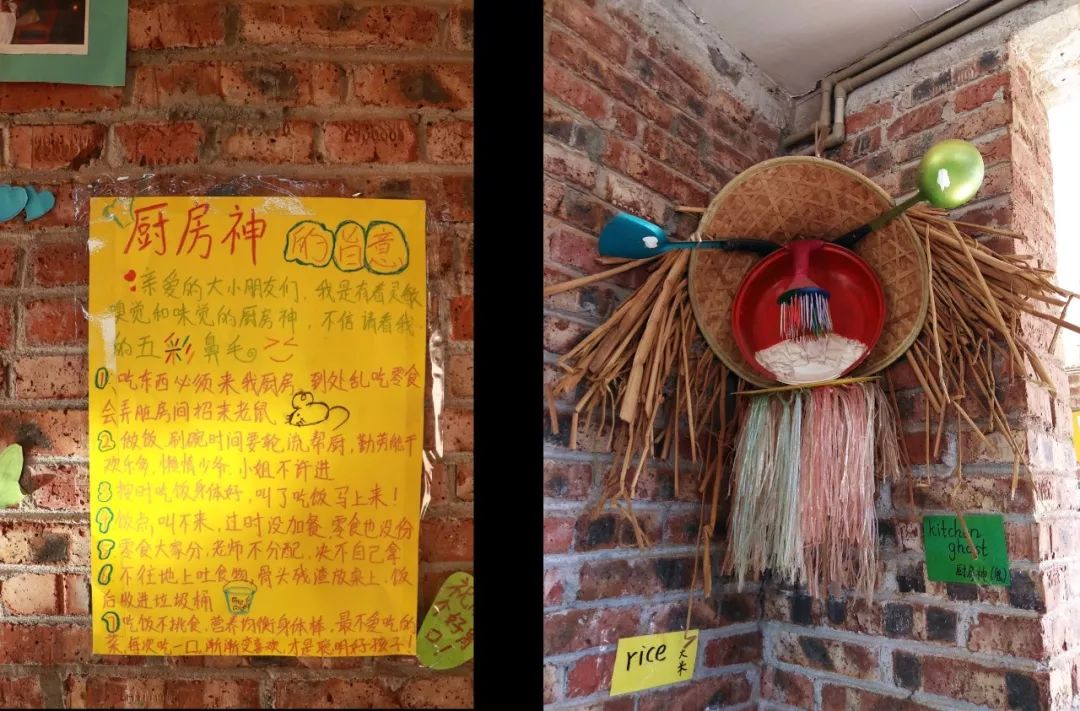 厨房神的旨意
亲爱的大小朋友们，我是有着灵敏
嗅觉和味觉的厨房神，不信请看我
的五彩鼻毛。
1 吃东西必须来我厨房，到处乱吃零食
会弄脏房间招来老鼠
2 做饭、刷碗时间要轮流帮厨，勤劳能干
欢乐多，懒惰少爷、小姐不许进
3 按时吃饭身体好，叫了吃饭马上来！
4 饭点叫不来，过时没加餐，零食也没份
5 零食大家分，老师不分配，决不自己拿
6 不往地上吐食物，骨头残渣放桌上，饭
后收进垃圾桶
7 吃饭不挑食，营养均衡身体棒，最不爱吃的
菜，每次吃一口，渐渐变喜欢，才是聪明好孩子！
kitchen
ghost
厨房神(鬼)
rice
大米